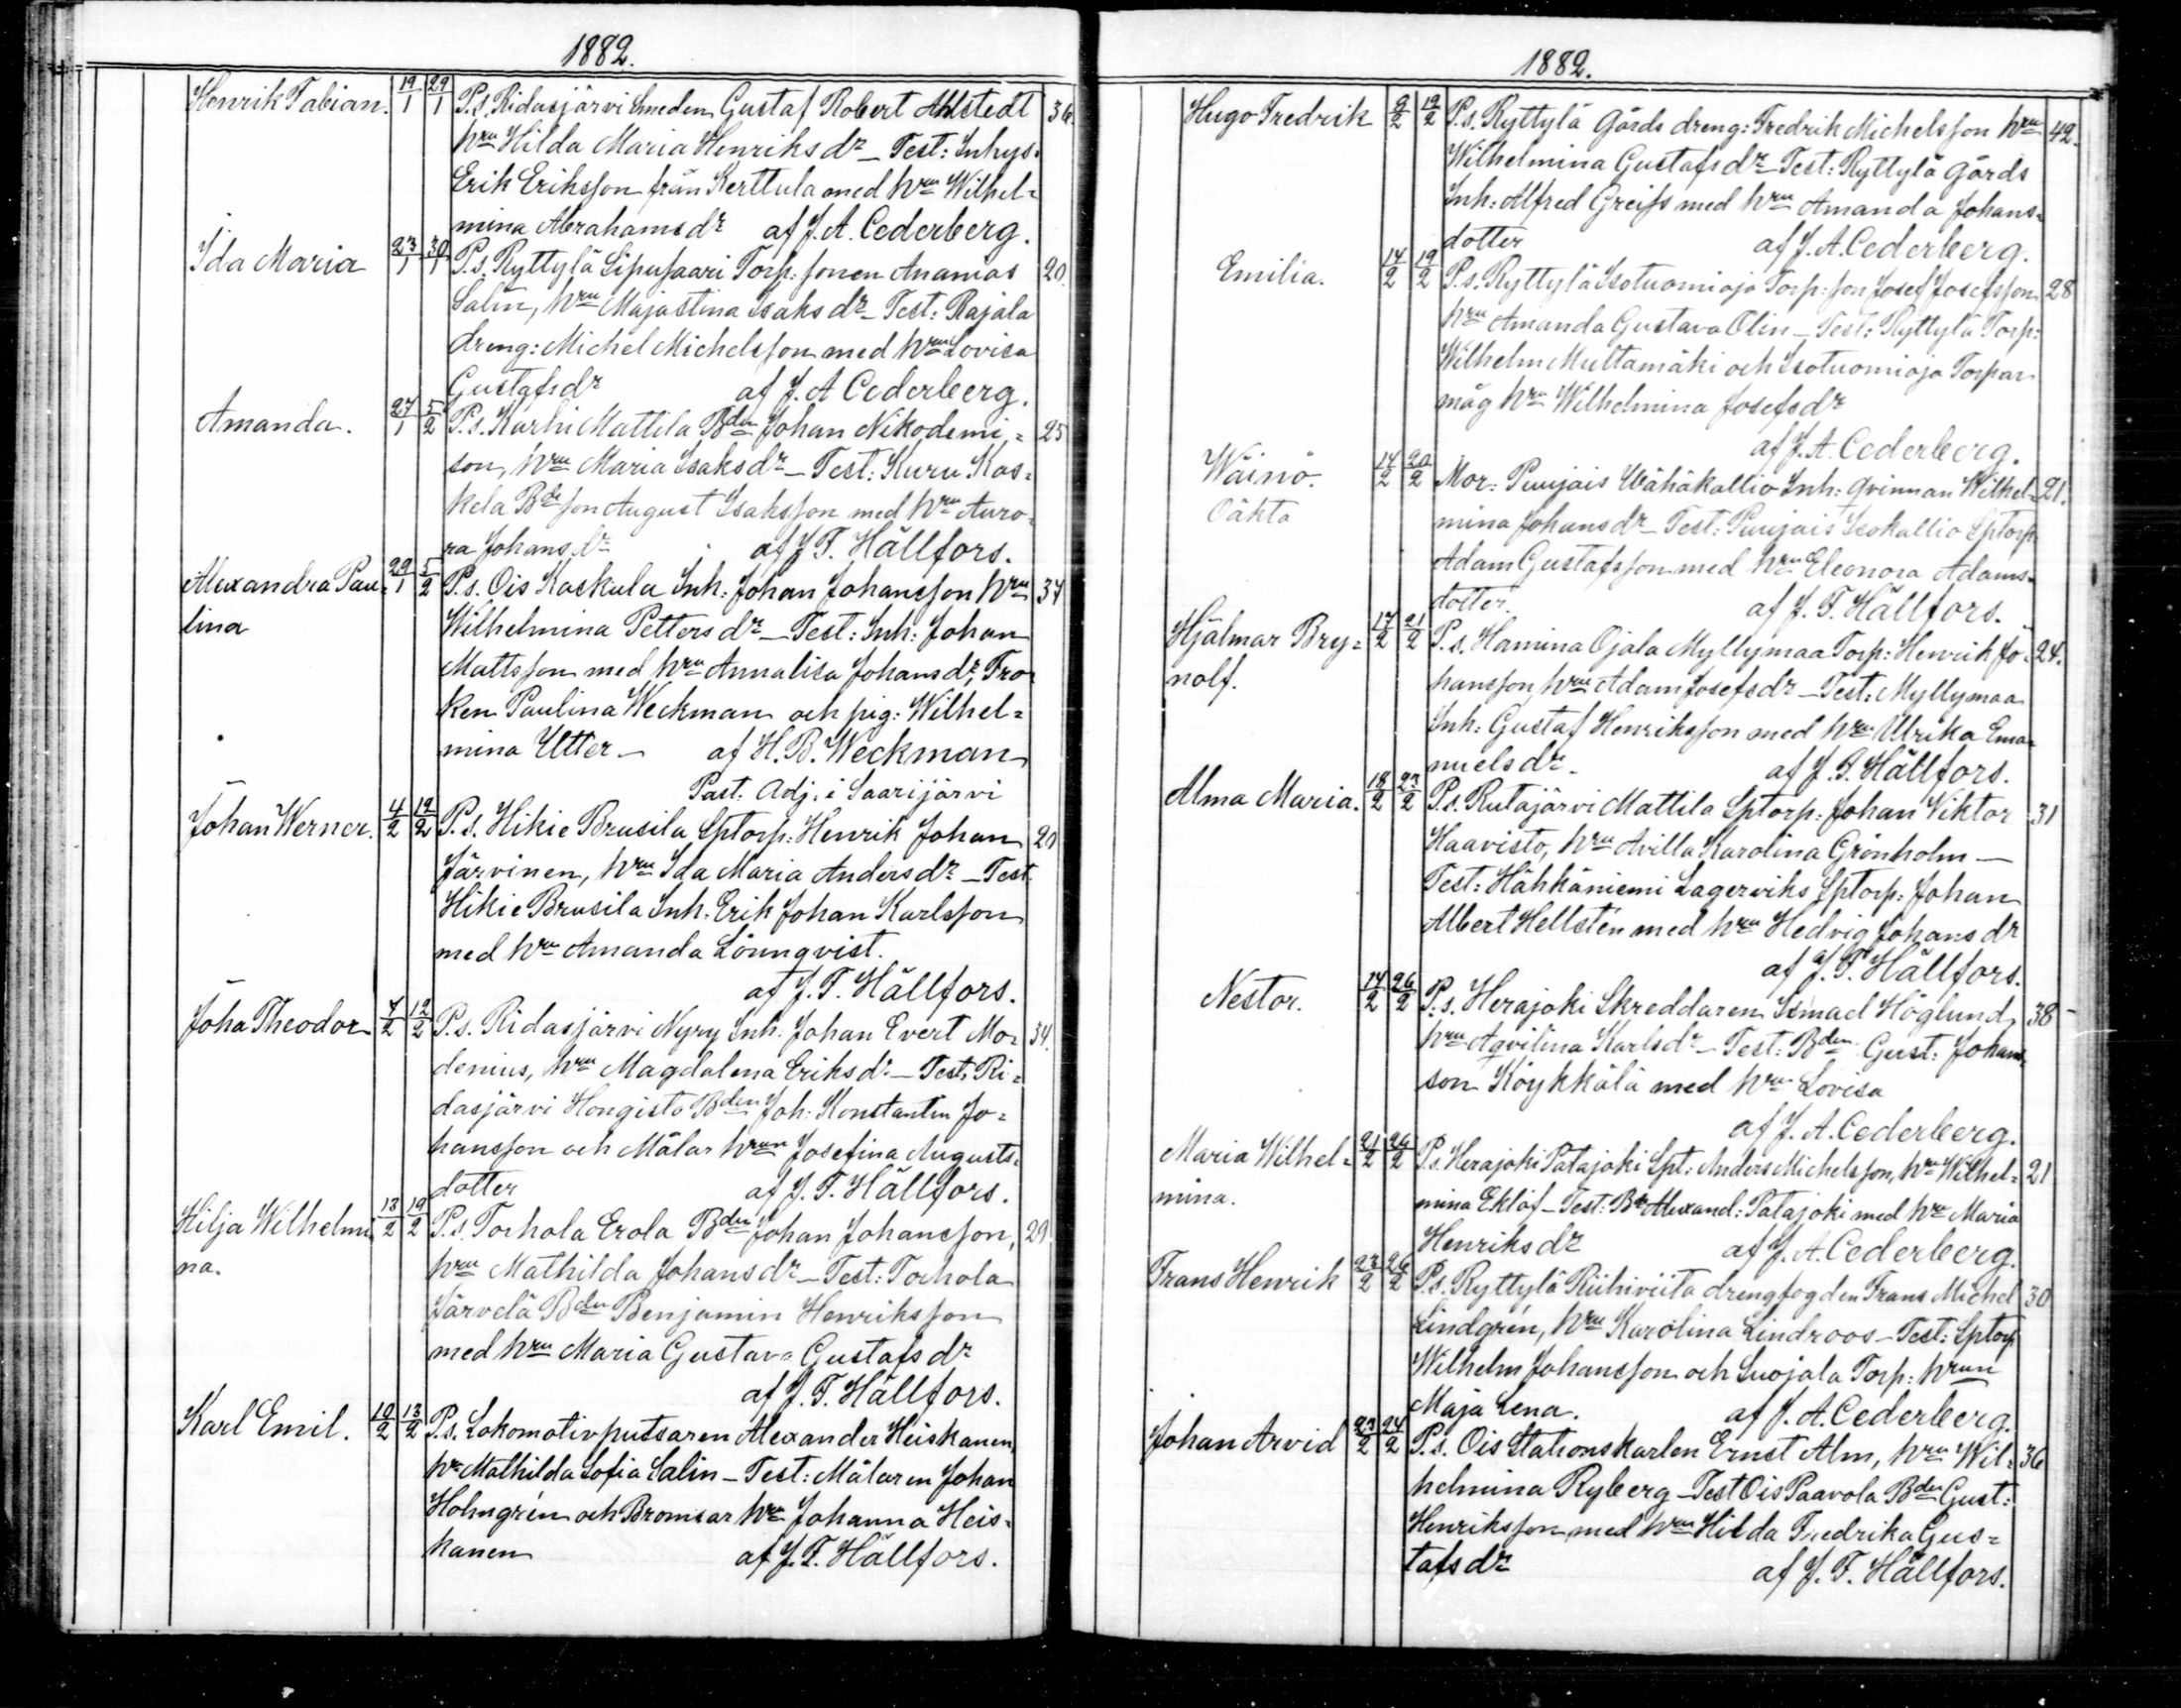 1882.
Henrik Fabian. 19/1 29/1 P.s. Ridasjärvi Smeden Gustaf Robert Ahlstedt 36.
hru Hilda Maria Henriksdr – Test: Inhys.
Erik Eriksson från Kerttula med hru Wilhel=
mina Abrahamsdr af J. A. Cederberg.
Ida Maria 23/1 30/1 P.s. Ryttylä Sipusaari Torp: sonen Ananias 20.
Salin, hru Majastina Isaksdr – Test: Rajala
dreng: Michel Michelsson med hru Lovisa
Gustafsdr af J. A Cederberg.
Amanda. 27/1 5/2 P.s. Karhi Mattila Bden Johan Nikodemi= 25
son, hru Maria Isaksdr – Test: Kuru Kos=
kela Bde son August Isaksson med hru Auro=
ra Johansdr af J. F. Hällfors.
Alexandra Pau= 29/1 5/2 P.s. Ois Kaskula Inh: Johan Johansson hru 37
lina Wilhelmina Pettersdr – Test: Inh: Johan
Mattsson med hru Annalisa Johansdr, Frö=
ken Paulina Weckman och pig: Wilhel=
mina Utter – af H. B. Weckman
Past. Adj. i Saarijärvi
Johan Werner. 4/2 12/2 P.s. Hikie Brusila Sptorp: Henrik Johan 20
Järvinen, hru Ida Maria Andersdr – Test:
Hikie Brusila Inh: Erik Johan Karlsson
med hru Amanda Lönnqvist.
af J. F. Hällfors.
Joha Theodor 7/2 12/2 P.s. Ridasjärvi Nyry Inh. Johan Evert Mo= 34.
denius, hru Magdalena Eriksdr – Test: Ri=
dasjärvi Hongisto Bden Joh: Konstantin Jo=
hansson och Målar hrun Josefina Augusts=
dotter af J. F. Hällfors.
Hilja Wilhelmi 13/2 19/2 P.s. Torhola Erola Bden Johan Johansson, 29
na. hru Mathilda Johansdr – Test: Torhola
Järvelä Bden Benjamin Henriksson
med hru Maria Gustava Gustafsdr
af J. F. Hällfors.
Karl Emil. 10/2 13/2 P.s. Lokomotivputsaren Alexander Heiskanen,
hru Mathilda Sofia Salin – Test: Målaren Johan
Holmgrén och Bromsar hru Johanna Heis=
kanen af J. F. Hällfors.
1882.
Hugo Fredrik 9/2 19/2 P.s. Ryttylä Gårds dreng: Fredrik Michelsson hru 42.
Wilhelmina Gustafsdr – Test: Ryttylä Gårds
Inh: Alfred Greifs med hru Amanda Johans=
dotter af J. A. Cederberg.
Emilia. 14/2 19/2 P.s. Ryttylä Isotuomioja Torp: son Josef Josefsson 28
hru Amanda Gustava Olin – Test: Ryttylä Torp:
Wilhelm Multamäki och Isotuomioja Torpar
måg hru Wilhelmina Josefsdr
af J. A. Cederberg.
Wäinö. 14/2 20/2 Mor: Puujais Wähäkallio Inh: qvinnan Wilhel= 21.
Oäkta mina Johansdr – Test: Puujais Isokallio Sptorp:
Adam Gustafsson med hru Eleonora Adams=
dotter. af J. F. Hällfors.
Hjälmar Bry= 17/2 21/2 P.s. Hamina Ojala Myllymaa Torp: Henrik Jo= 24.
nolf. hansson, hru Adam Josefsdr – Test: Myllymaa
Inh: Gustaf Henriksson med hru Ulrika Ema=
nuelsdr – af J. F. Hällfors.
Alma Maria. 18/2 23/2 P.s. Rutajärvi Mattila Sptorp: Johan Viktor 31
Haavisto, hru Avilla Karolina Grönholm –
Test: Hähkäniemi Lagerviks Sptorp: Johan
Albert Hellstén med hru Hedvig Johansdr
af J. F. Hällfors.
Nestor. 14/2 26/2 P.s. Herajoki Skreddaren Ismael Höglund, 38
hru Aqvilina Karlsdr – Test: Bden Gust: Johans=
son Köykkälä med hru Lovisa
af J. A. Cederberg.
Maria Wilhel= 21/2 26/2 P.s. Herajoki Patajoki Spt: Anders Michelsson, hru Wilhel= 21
mina. mina Eklöf – Test: Bde Alexand: Patajoki med hru Maria
Henriksdr af J. A. Cederberg.
Frans Henrik 23/2 26/2 P.s. Ryttylä Riihiviita drengfogden Frans Michel 30
Lindgrén, hru Karolina Lindroos – Test: Sptorp
Wilhelm Johansson och Suojala Torp: hrun
Maja Lena. af J. A. Cederberg.
Johan Arvid 23/2 24/2 P.s. Ois Stationskarlen Ernst Alm, hru Wil= 36
helmina Ryberg – Test Ois Paavola Bden Gust:
Henriksson med hru Hilda Fredrika Gus=
tafsdr af J. F. Hällfors.